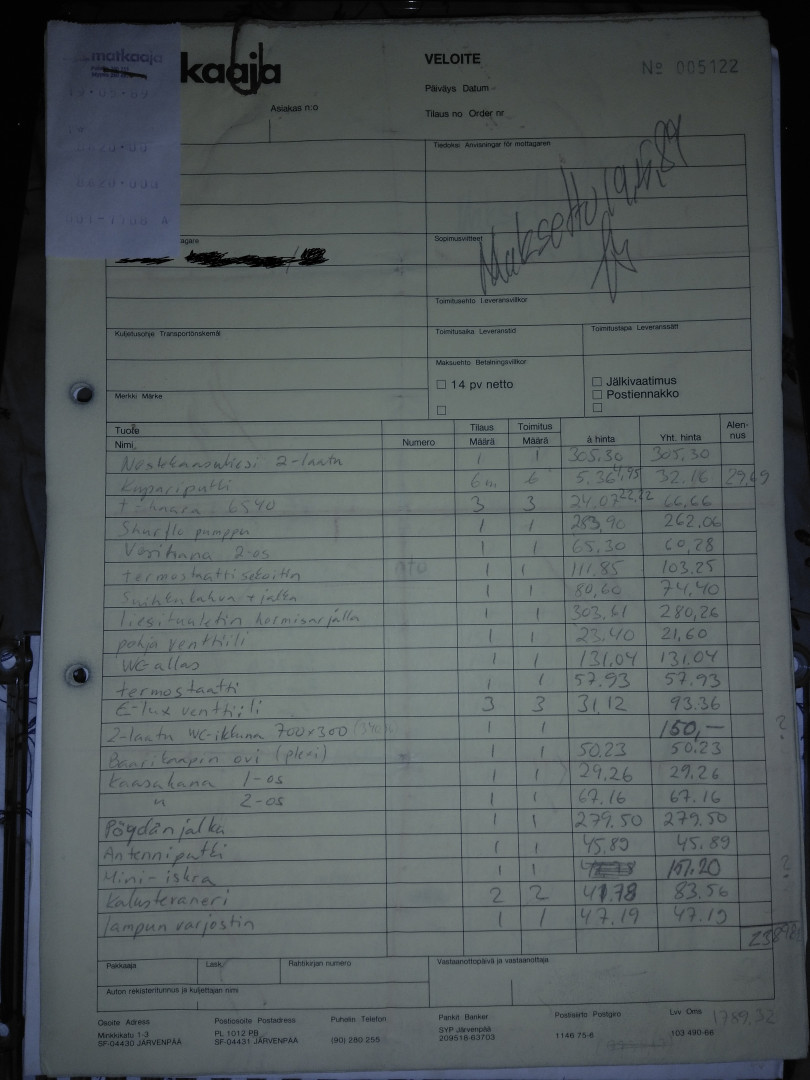 matkaaja
kaaja
VELOITE
Nº 005122
Päiväys Datum
Asiakas n:o
Tilaus no Order nr
Tiedoksi Anvisningar för mottagaren
Maksettu 19.5.89
agare
Sopimusviitteet
Toimitusehto Leveransvillkor
Kuljetusohje Transportönskemål
Toimitusaika Leveranstid
Toimitustapa Leveranssätt
Maksuehto Betalningsvillkor
14 pv netto
Jälkivaatimus
Postiennakko
Merkki Märke
Tuote Tilaus Toimitus Alen-
Nimi Numero Määrä Määrä à hinta Yht. hinta nus
2-laatu 1 1 305.30 305.30
Kupariputki 6m 6 5.36 4,95 32.16 29,69
3 3 24.07 22,22 66,66
Shurflo pumppu 1 1 283,90 262,06
Vesihana 2-os 1 1 65.30 60,28
termostaattisekoitin 1 1 111.85 103.25
Suihkukahva + jalka 1 1 80,60 74,40
liesituuletin hormisarjalla 1 1 303,61 280,26
pohjaventtiili 1 1 23.40 21,60
WC-allas 1 1 131.04 131.04
termostaatti 1 1 57.93 57.93
E-lux venttiili 3 3 31,12 93.36
2-laatu WC-ikkuna 700x300 1 1 150,— ?
Baarikaapin ovi (plexi) 1 1 50,23 50.23
Kaasuhana 1-os 1 1 29.26 29.26
" 2-os 1 1 67.16 67.16
Pöydänjalka 1 1 279.50 279.50
Antenniputki 1 1 45.89 45.89
Mini-iskra 1 1 157.20 ?
Kalustevaneri 2 2 41.78 83.56
lampun varjostin 1 1 47.19 47.19
Pakkaaja
Lask.
Rahtikirjan numero
Vastaanottopäivä ja vastaanottaja
Auton rekisteritunnus ja kuljettajan nimi
Osoite Adress
Postiosoite Postadress
Puhelin Telefon
Pankit Banker
Postisiirto Postgiro
Lvv Oms
1789.32
Minkkikatu 1-3
PL 1012 PB
(90) 280 255
SYP Järvenpää
1146 75-6
103 490-66
SF-04430 JÄRVENPÄÄ
SF-04431 JÄRVENPÄÄ
209518-63703